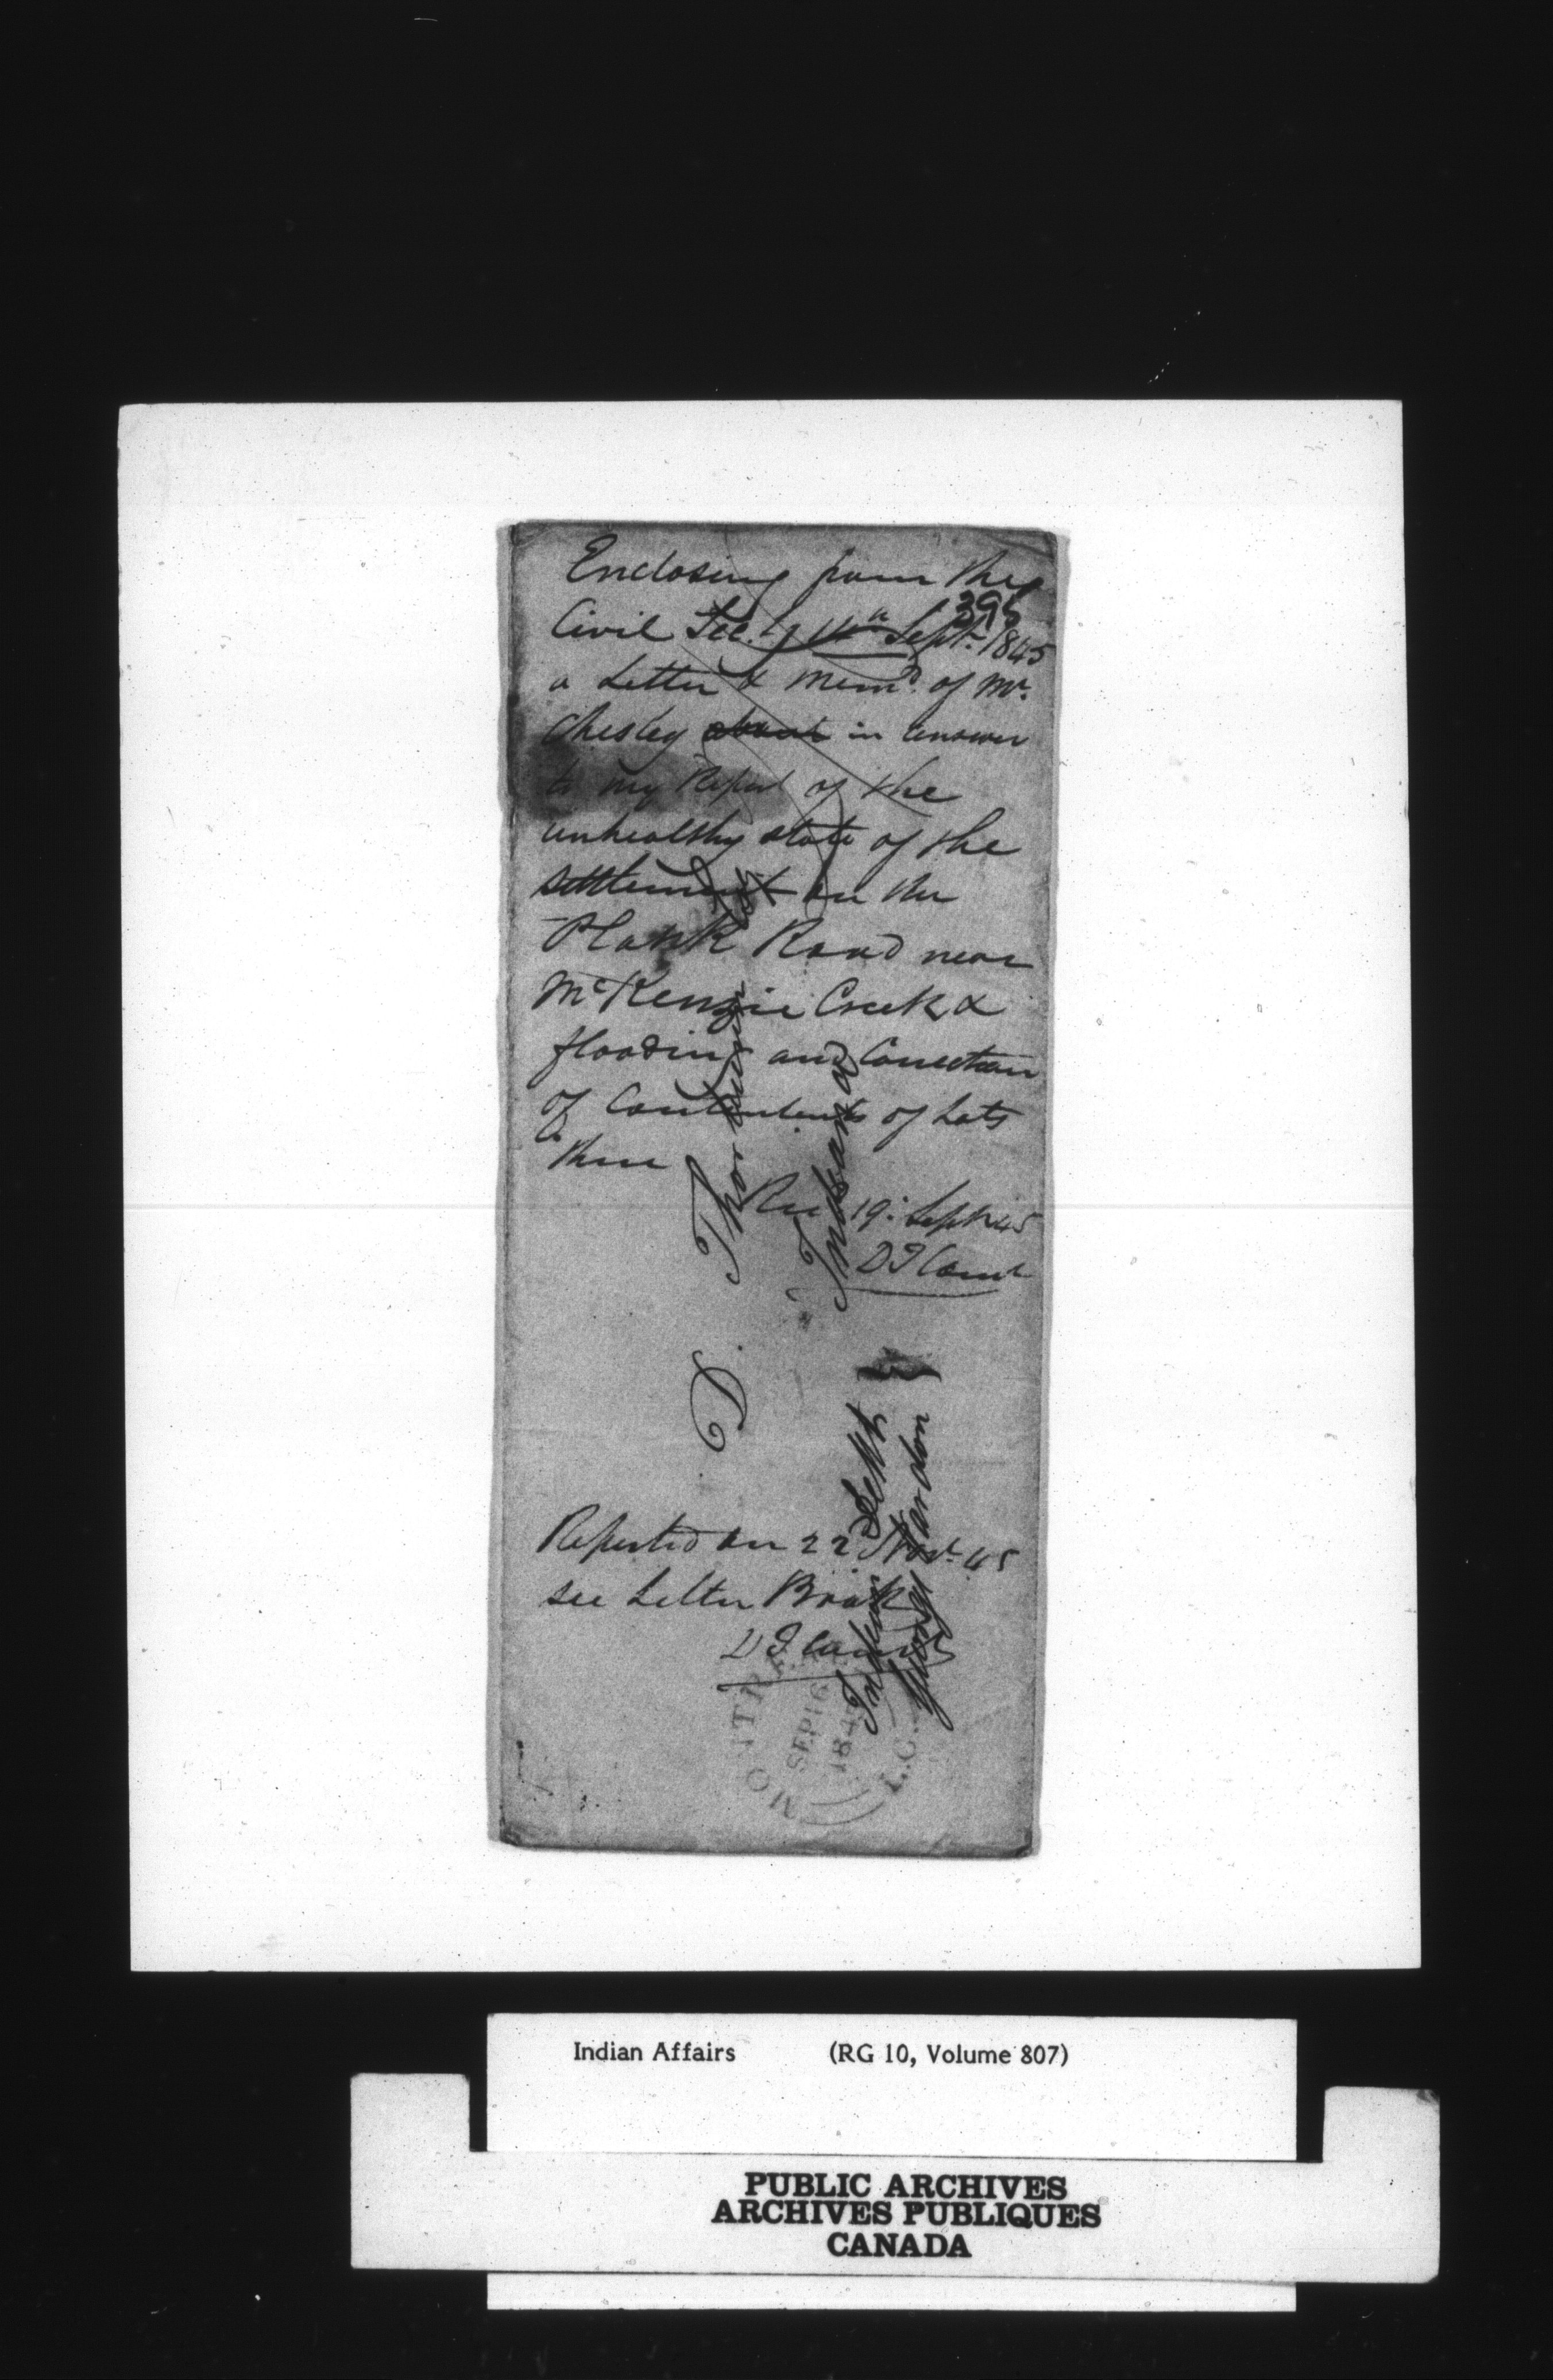 Enclosing from the
395
Civil Secy Sept. 1845
a Letter & Memd. of Mr.
Chesley about in answer
to my Report of the
unhealthy state of the
settlement on the
Plank Road near
McKenzie Creek &
flooding and Correction
of Contents of Lots
there
Rec 19: Sept 45
D T Comr
D. Thorburn Esq
Indian
Reported on 22d Novr 45
see Letter Book
D T Comr
Indian Dept
George Vardon
MONTREAL L.C.
SEP 16
1845
Indian Affairs (RG 10, Volume 807)
PUBLIC ARCHIVES
ARCHIVES PUBLIQUES
CANADA